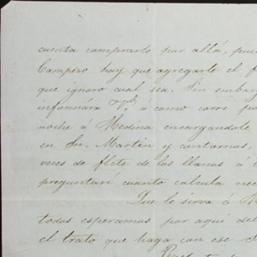 cuenta comprarlo por allá, pues
Campero hay que agregarle el f
que ignoro cual sea. Sin embarg
informará Vd, á como corre por
noche á Medina encargandole
en Sn. Martin y cantamos,
veces de flete de los llanos á
preguntaré cuanto calcula nece
Que le sirva á
todas esperamos por aqui del
el trato que haga con ese